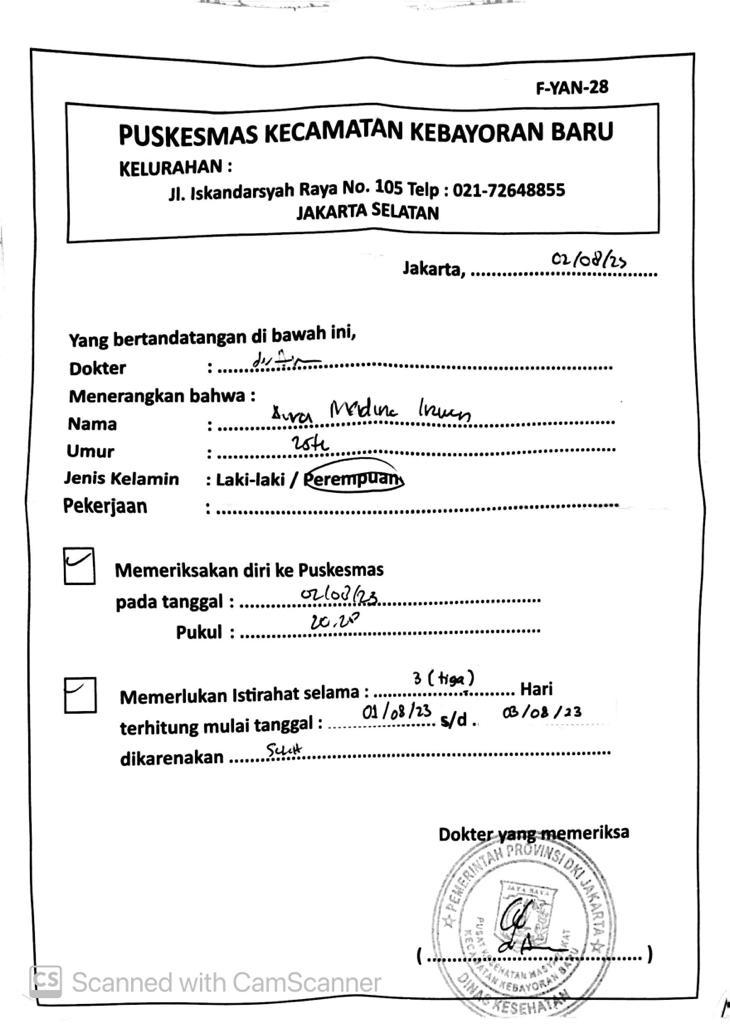 F-YAN-28
PUSKESMAS KECAMATAN KEBAYORAN BARU
KELURAHAN :
Jl. Iskandarsyah Raya No. 105 Telp : 021-72648855
JAKARTA SELATAN
Jakarta, 02/08/23
Yang bertandatangan di bawah ini,
Dokter :
Menerangkan bahwa :
Nama :
Umur :
Jenis Kelamin : Laki-laki / Perempuan
Pekerjaan :
Memeriksakan diri ke Puskesmas
pada tanggal : 02/08/23
Pukul : 20.20
Memerlukan Istirahat selama : 3 (tiga) Hari
terhitung mulai tanggal : 01/08/23 s/d . 03/08/23
dikarenakan
Dokter yang memeriksa
PEMERINTAH PROVINSI DKI JAKARTA
JAYA RAYA
PUSAT KESEHATAN MASYARAKAT
KECAMATAN KEBAYORAN BARU
DINAS KESEHATAN
( )
CS Scanned with CamScanner